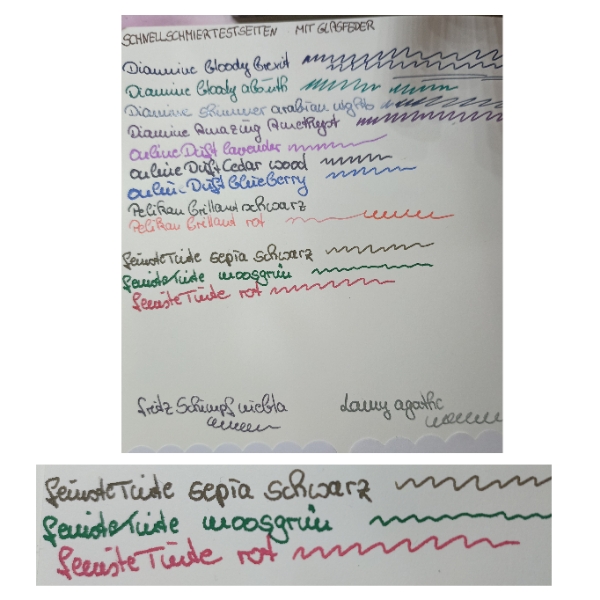 SCHNELLSCHMIERTESTSEITEN MIT GLASFEDER
Diamine bloody brexit
Diamine bloody absinth
Diamine shimmer arabian nights
Diamine Amazing Amethyst
online Duft lavender
online Duft Cedar wood
online Duft blueberry
Pelikan Brillant schwarz
Pelikan Brillant rot
feinste Tinte sepia schwarz
feinste Tinte moosgrün
feinste Tinte rot
fritz Schimpf
Lamy agathe
feinste Tinte sepia schwarz
feinste Tinte moosgrün
feinste Tinte rot